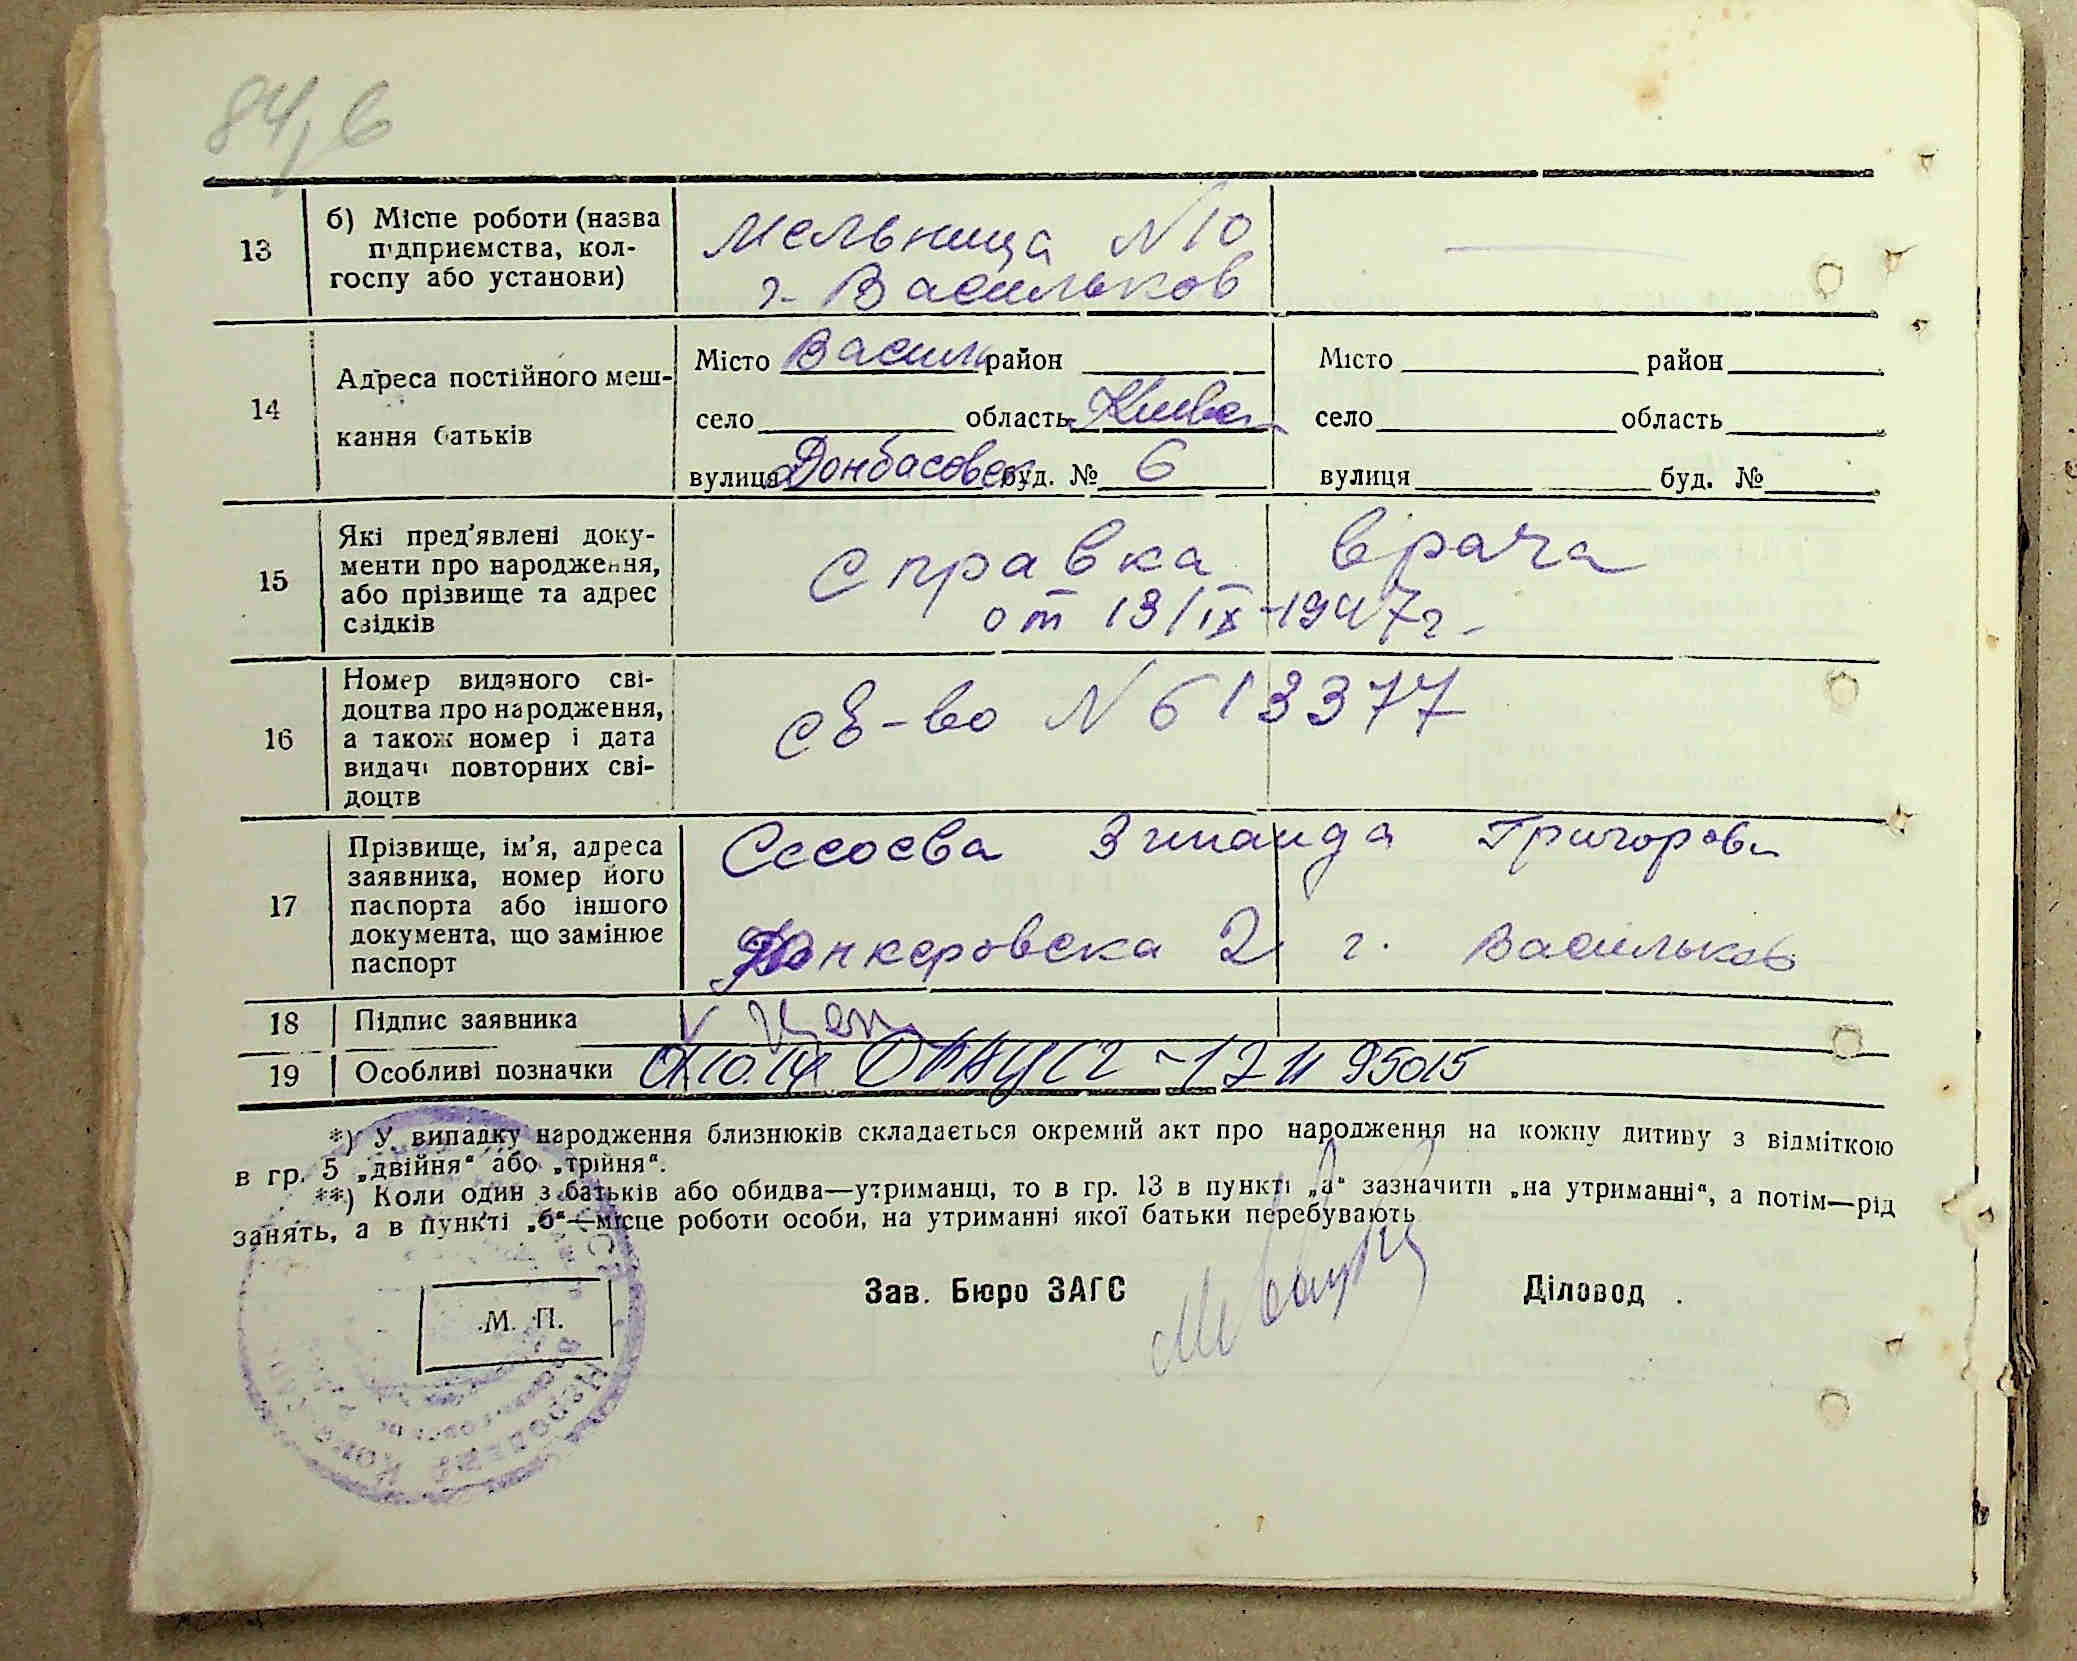 84, б
13
б) Місце роботи (назва
підприємства, кол-
госпу або установи)
Мельница N 10
г. Васильков
14
Адреса постійного меш-
кання батьків
Місто Васильк район
село область Киевс
вулиця Донбасовск буд. № 6
Місто район
село область
вулиця буд. №
15
Які пред'явлені доку-
менти про народження,
або прізвище та адрес
свідків
Справка врача
от 13/IX-1947г.
16
Номер виданого сві-
доцтва про народження,
а також номер і дата
видачі повторних сві-
доцтв
св-во N 613377
17
Прізвище, ім'я, адреса
заявника, номер його
паспорта або іншого
документа, що замінює
паспорт
Сысоева Зинаида Григоров
2 г. Васильков
18
Підпис заявника
19
Особливі позначки
*) У випадку народження близнюків складається окремий акт про народження на кожну дитину з відміткою
в гр. 5 „двійня“ або „трійня“.
**) Коли один з батьків або обидва—утриманці, то в гр. 13 в пункті „а“ зазначити „на утриманні“, а потім—рід
занять, а в пункті „б“—місце роботи особи, на утриманні якої батьки перебувають
М. П.
Зав. Бюро ЗАГС
Діловод